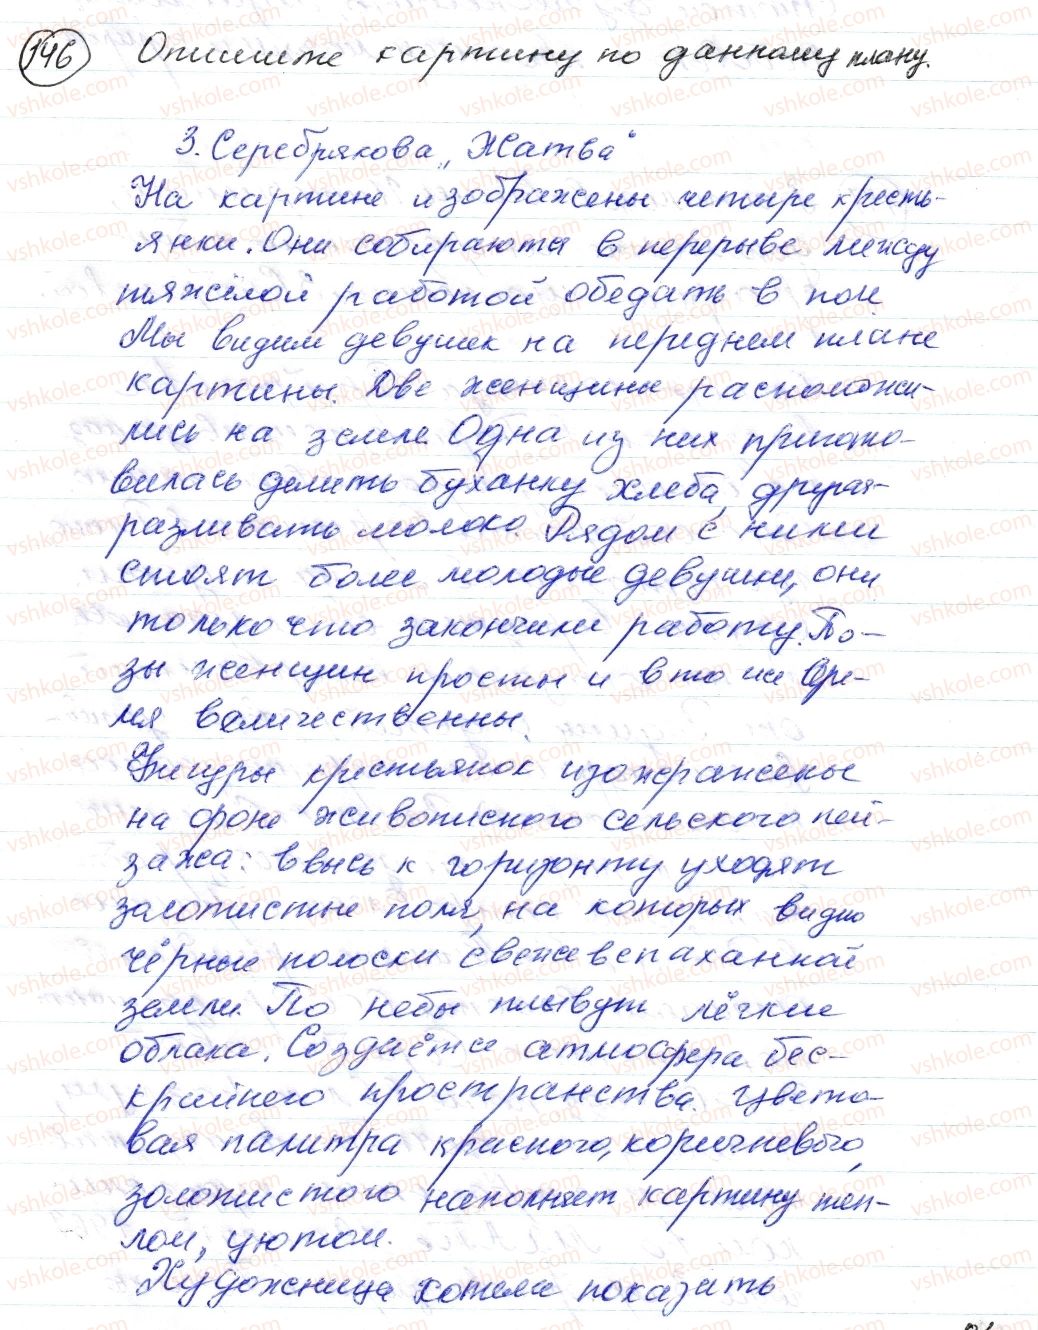 146 Опишите картину по данному плану.
З. Серебрякова „Жатва“
На картине изображены четыре кресть-
янки. Они собираются в перерыве между
тяжёлой работой обедать в поле
Мы видим девушек на переднем плане
картины. Две женщины расположи-
лись на земле. Одна из них пригото-
вилась делить буханку хлеба, другая-
разливать молоко. Рядом с ними
стоят более молодые девушки, они
только что закончили работу. По-
зы женщин просты и в то же вре-
мя величественны.
Фигуры крестьянок изображены
на фоне живописного сельского пей-
зажа: ввысь к горизонту уходят
золотистые поля, на которых видно
чёрные полоски свежевспаханной
земли. По небы плывут лёгкие
облака. Создаётся атмосфера бес-
крайнего пространства. Цвето-
вая палитра красного, коричневого,
золотистого наполняет картину теп-
лом, уютом.
Художница хотела показать